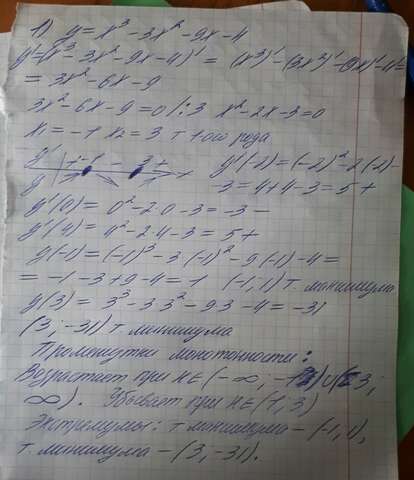 1) y = x³ - 3x² - 9x - 4
y' = (x³ - 3x² - 9x - 4)' = (x³)' - (3x³)' - (9x)' - 4' =
= 3x² - 6x - 9
3x² - 6x - 9 = 0 /:3 x² - 2x - 3 = 0
x₁ = -1 x₂ = 3 т 1 ого рода
y' + -1 - 3 + x y'(-2) = (-2)² - 2(-2) -
y - 3 = 4 + 4 - 3 = 5 +
y'(0) = 0² - 2 0 - 3 = -3 -
y'(4) = 4² - 2 4 - 3 = 5 +
y(-1) = (-1)³ - 3 (-1)² - 9 (-1) - 4 =
= -1 - 3 + 9 - 4 = 1 (-1, 1) т. максимума
y(3) = 3³ - 3 3² - 9 3 - 4 = -31
(3, -31) т минимума
Промежутки монотонности:
Возрастает при x ∈ (-∞; -1) ∪ (3;
∞). Убывает при x ∈ (1; 3)
Экстремумы: т максимума - (-1, 1),
т. минимума - (3, -31).